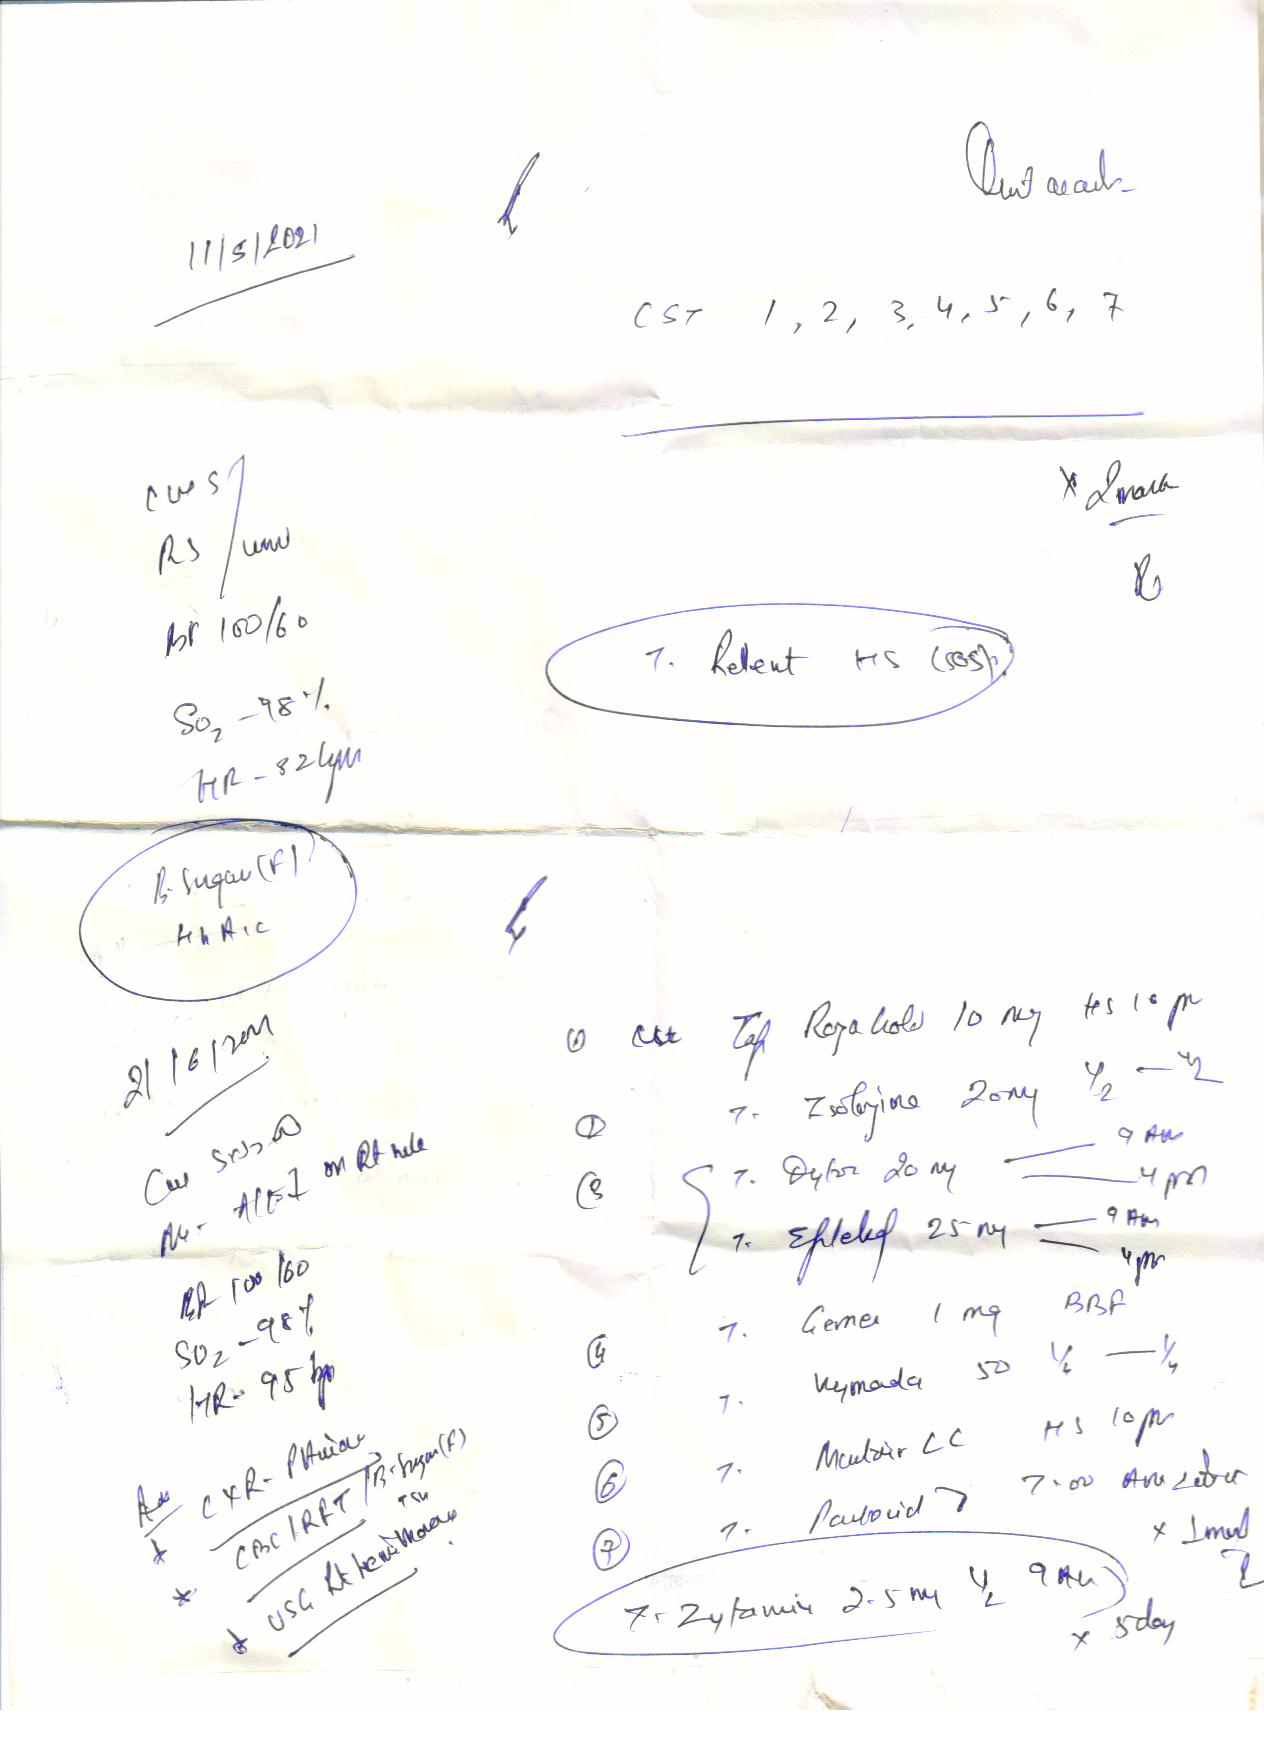 11/5/2021
CST 1, 2, 3, 4, 5, 6, 7
CVS
RS
BP 100/60
SO2 - 98%
HR - 82 bpm
T. Relent HS (SOS)
B. Sugar (F)
HbA1C
21/6/2021
CVS S1S2
on Rt side
BP 100/60
SO2 - 98%
HR - 95 bpm
Adv CXR - PA view
* CBC/RFT/B. Sugar (F)
TSH
* USG Rt hemithorax
① CST Tab Rozagold 10 mg HS 10 pm
② T. Isolazine 20mg 1/2 — 1/2
③ T. Dytor 20 mg 9 AM
4 pm
T. 25 mg 9 AM
4 pm
④ T. Gemer 1 mg BBF
⑤ T. Vymada 50 1/2 — 1/2
⑥ T. Montair LC HS 10 pm
⑦ T. 7.00 AM
x 1
T. Zytanix 2.5 mg 1/2 9 AM
x 5 day